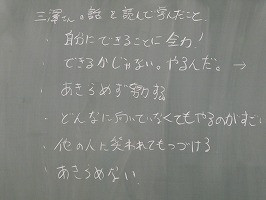 三澤さんの話を読んで学んだこと
・自分にできることに全力!
・できるかじゃない。やるんだ。→
・あきらめず努力する
・どんなに向いていなくてもやるのがすごい
・他の人に笑われてもつづける
・あきらめない